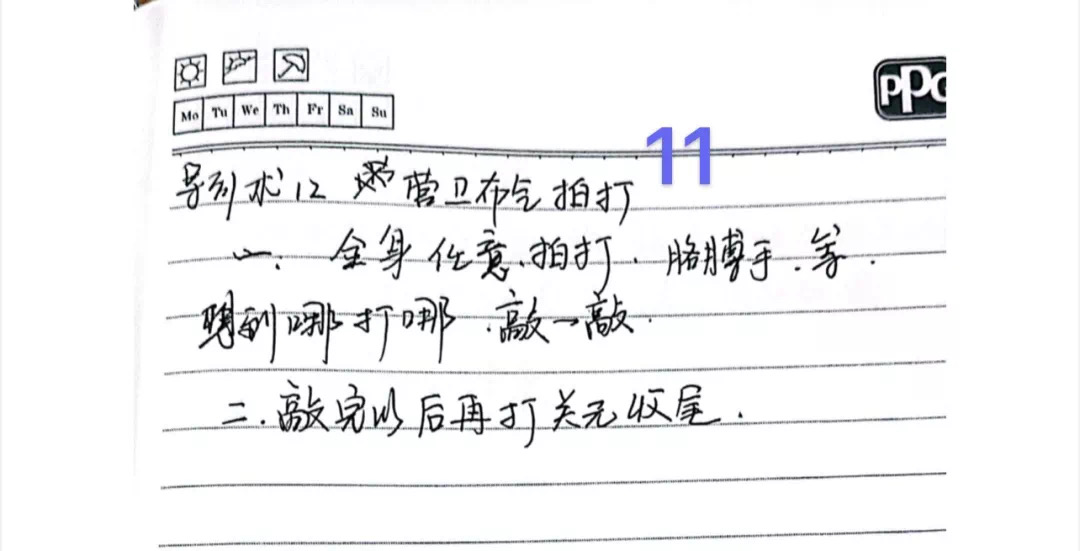 Mo Tu We Th Fr Sa Su
PPG
11
导引术12 营卫布气拍打
一、全身任意.拍打.胳膊手.等.
到哪打哪.敲一敲.
二.敲完以后再打关元收尾.